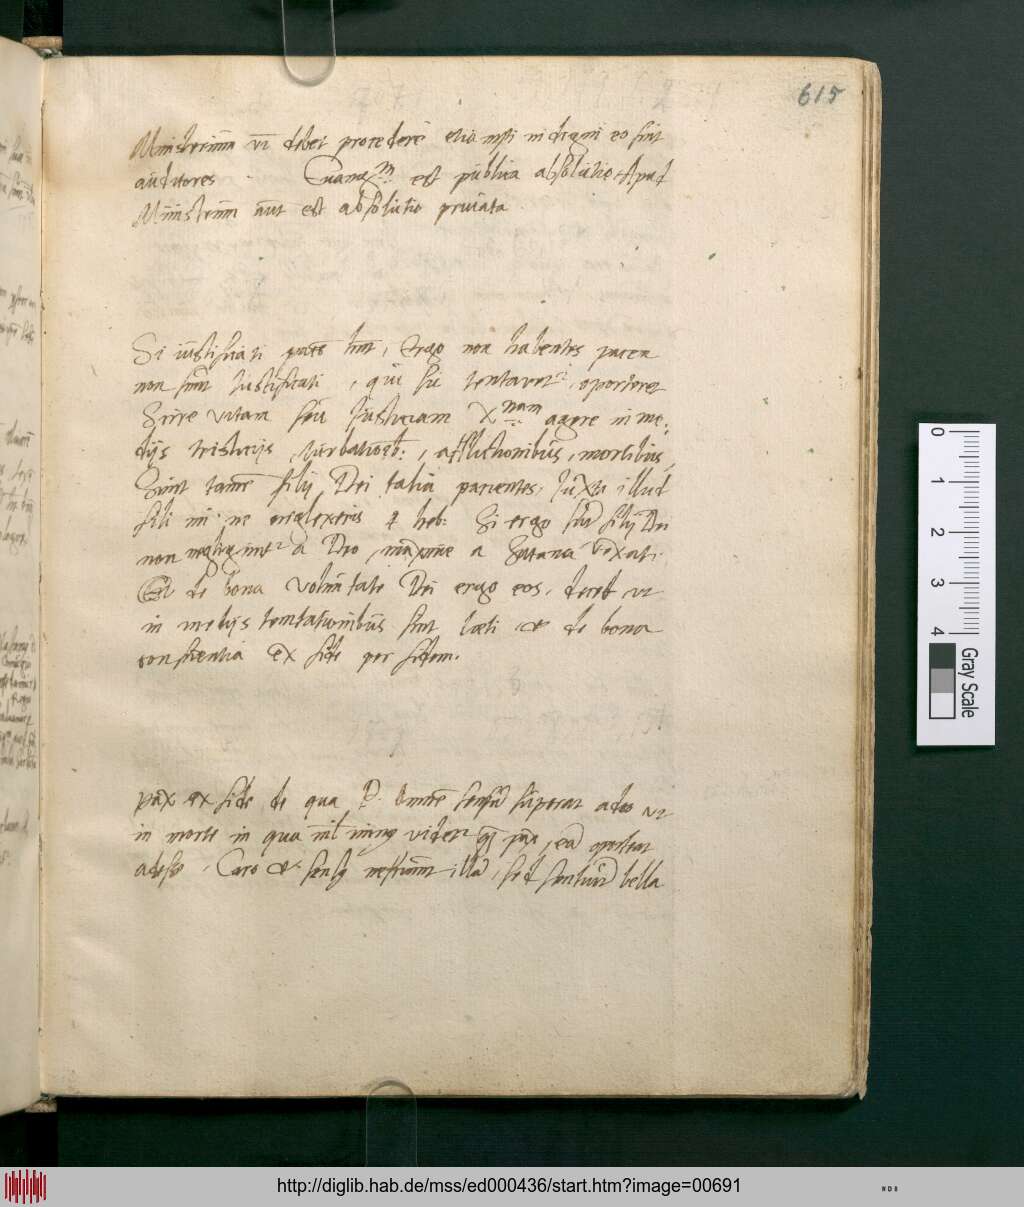 615
Ministerium vi debet procedere etia msi indigni eo sint
auditores . Euang^m est publica absolutio, Apud
Ministrum aut est absolutio priuata.
Si iustificati pacē hnt, Ergo non habentes pacem
non sunt iustificati, qui sic tentaret, oporteret
Scire vitam seu Iusticiam X^nam agere in me:
dijs tristicijs turbationib:, afflictionibus, morbibus,
Sunt tamē filij Dei talia pacientes, Iuxta illud
fili mi ne neglexeris 4 heb: Si ergo sūt filij Dei
non negligunt^r a Deo, maxime a Satana vexati.
Est de bona voluntate Dei erga eos, decet vt
in medijs temtationibus sint læti & de bona
conscientia ex fide per fidem.
Pax ex fide de qua P. Omnē sensū superat adeo vt
in morte in qua nil minus videt^r q̄ pax, eā oporteat
adesse, Caro & sensus nesciunt illā, sed sentiunt bella
0 1 2 3 4
Gray Scale
http://diglib.hab.de/mss/ed000436/start.htm?image=00691